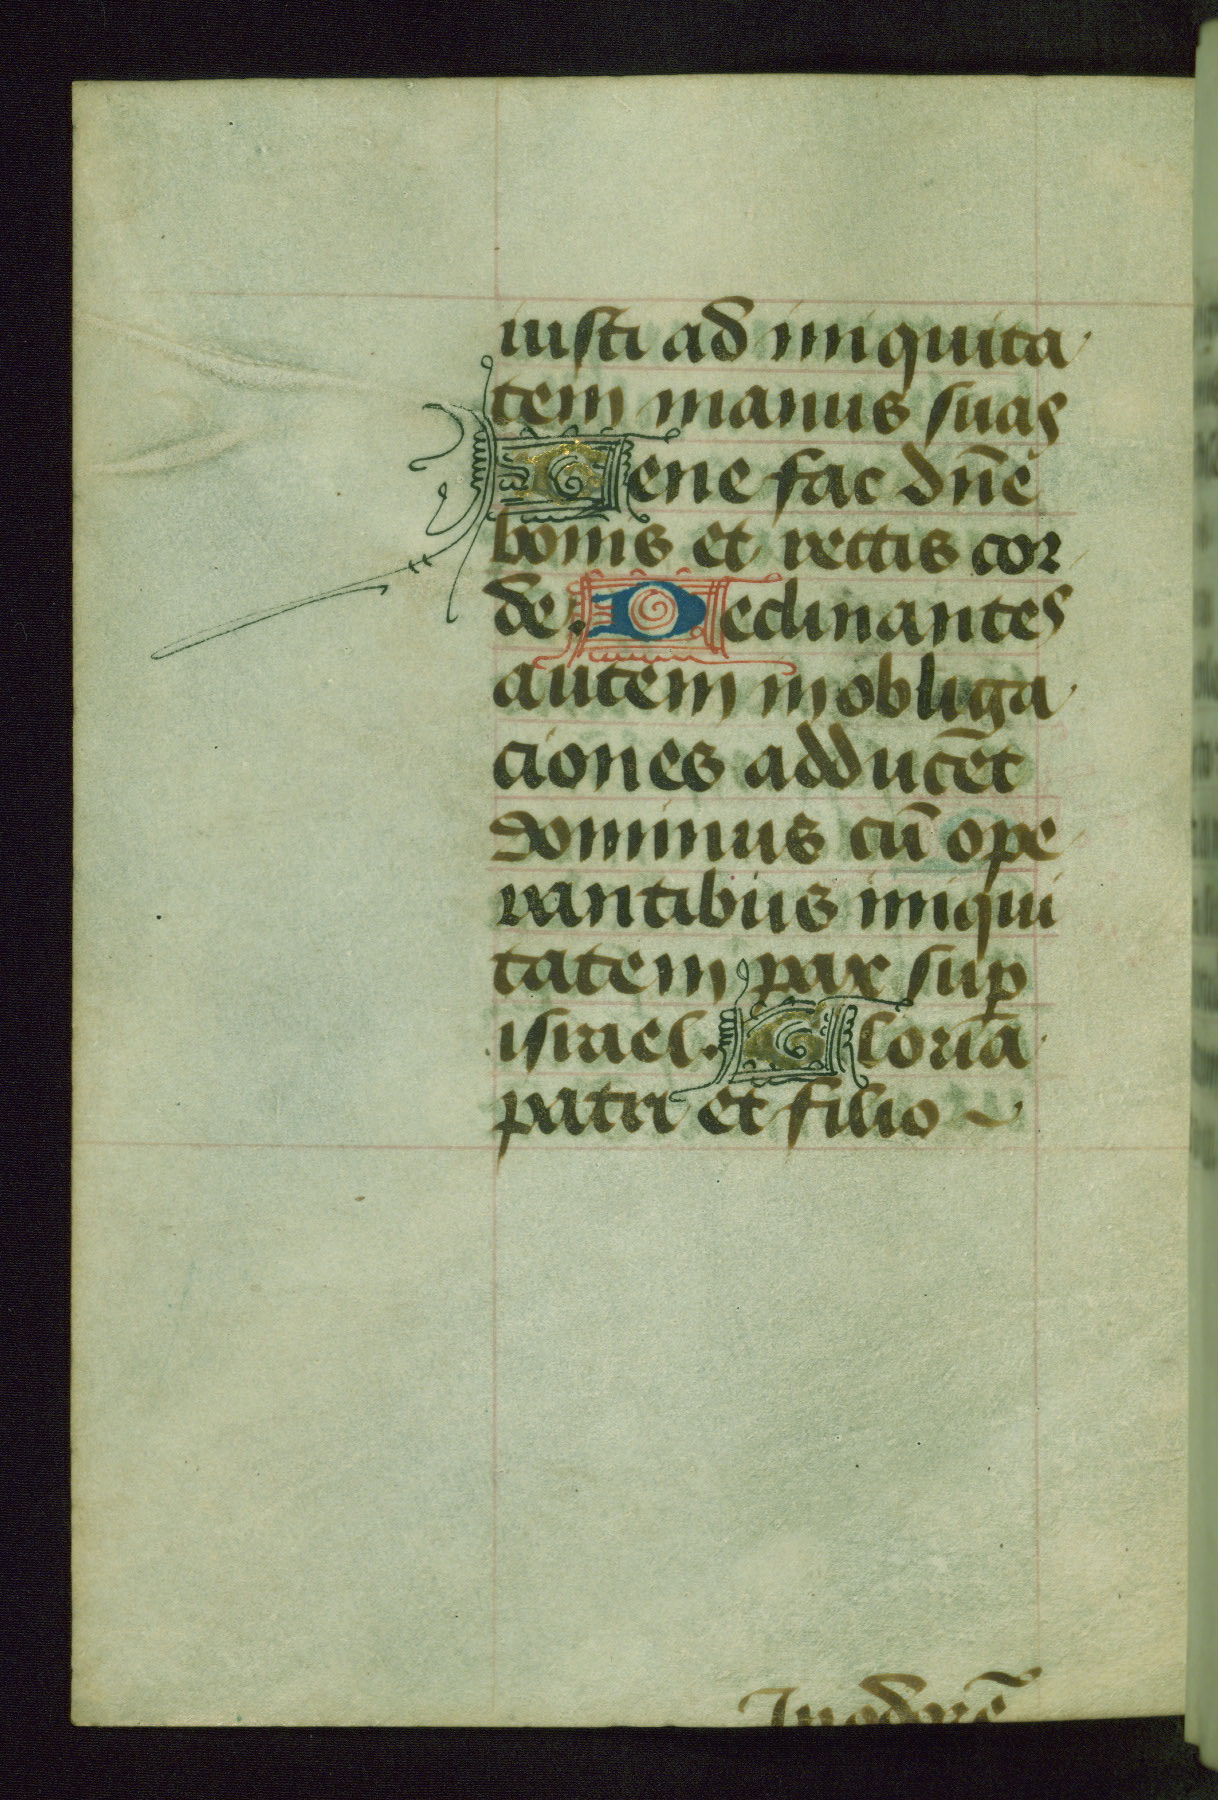 iusti ad iniquita
tem manus suas
Bene fac dn̄e
bonis et rectis cor
de. Declinantes
autem in obliga
ciones adducēt
dominus cū ope
rantibus iniqui
tatem pax sup
israel. Gloria
patri et filio
In odorē